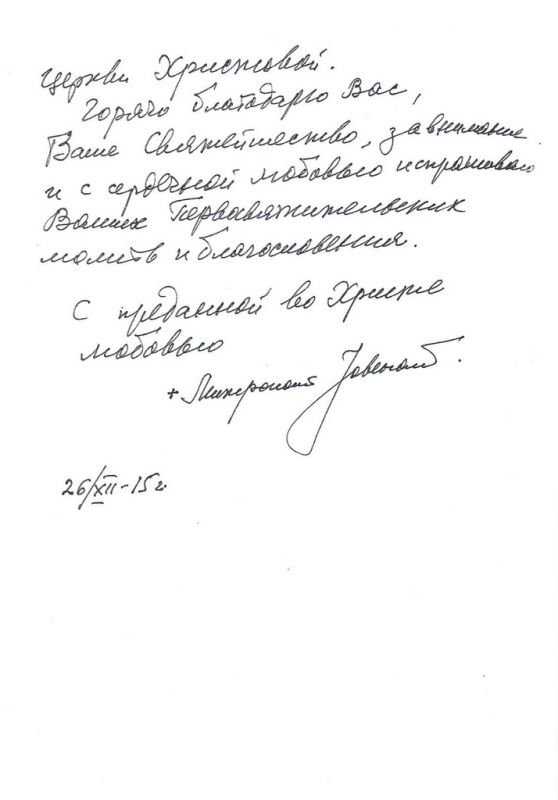 Церкви Христовой.
Горячо благодарю Вас,
Ваше Святейшество, за внимание
и с сердечной любовью испрашиваю
Ваших Первосвятительских
молитв и благословения.
С преданной во Христе
любовью
+ Митрополит Ювеналий.
26/XII-15г.